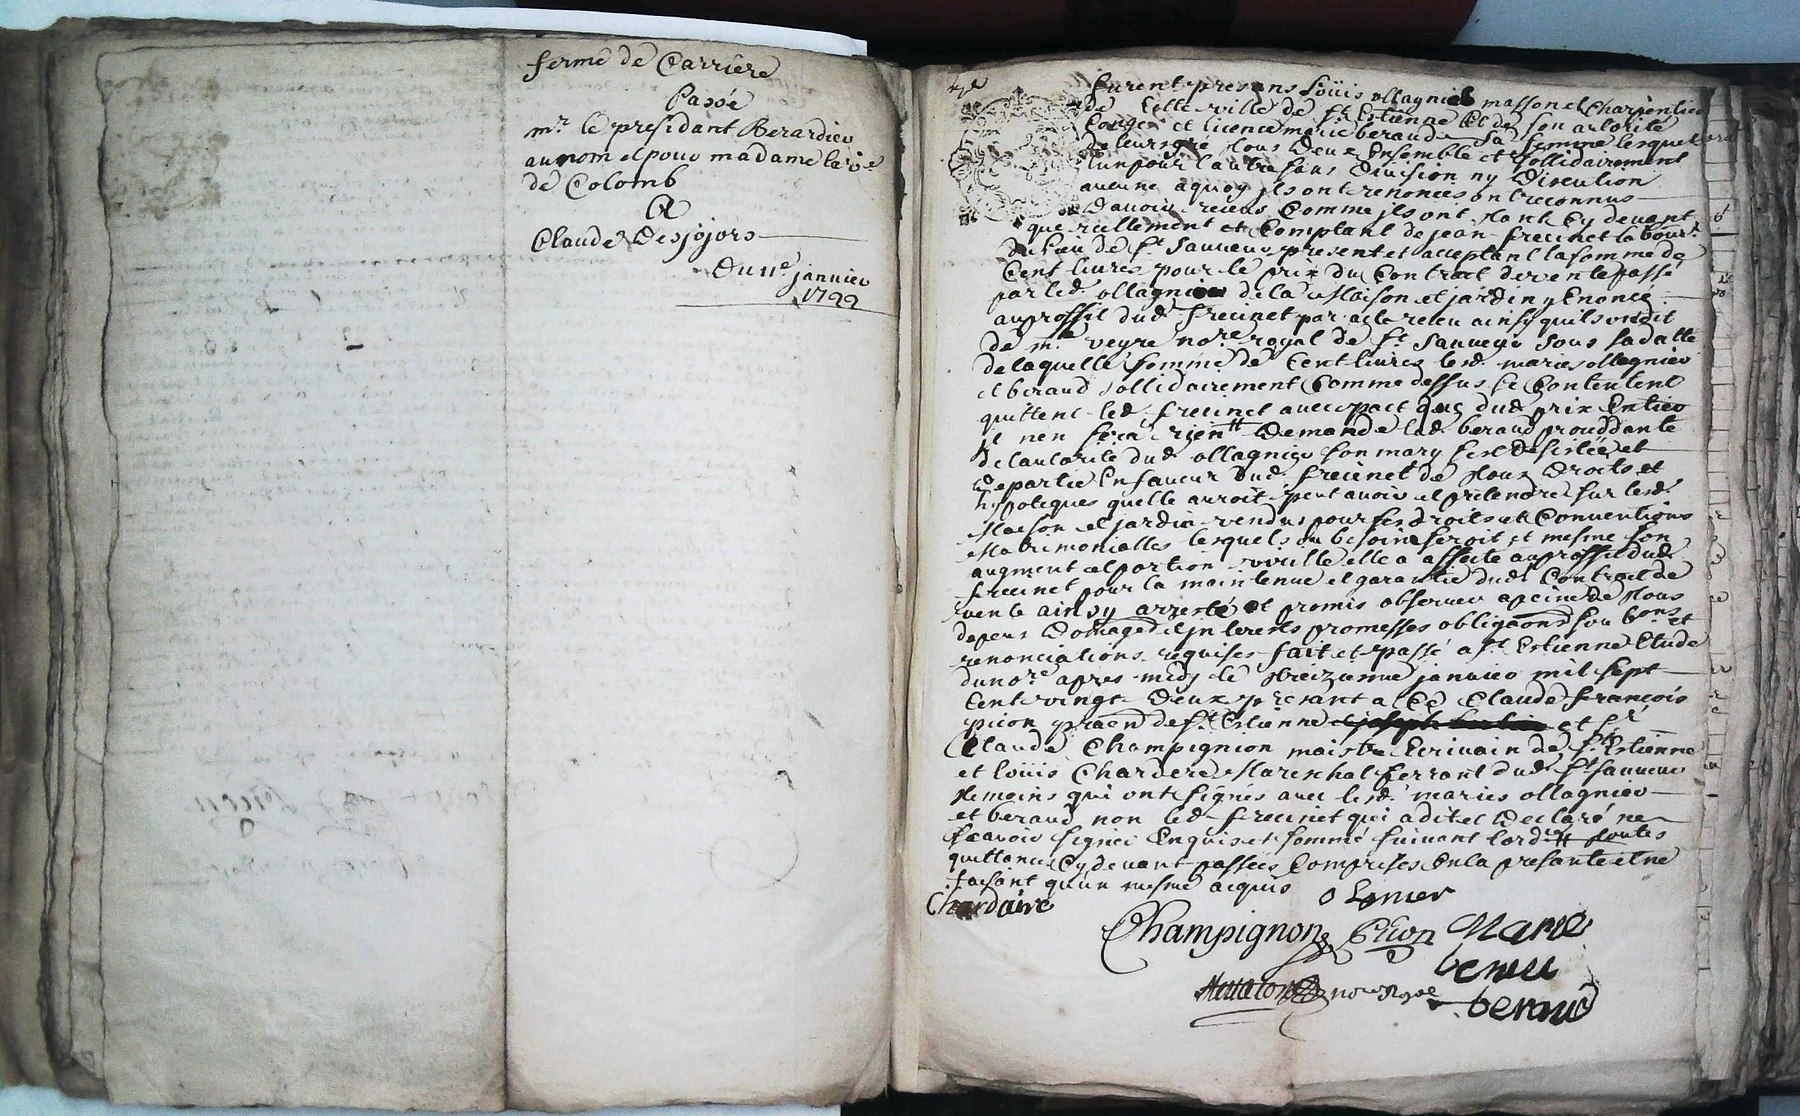 ferme de Carrière
Passé
mr. le presidant Berardier
au nom et pour madame la v.e
de Colomb
A
Claude Desjojors
Du 11e janvier
1722
furent presens Loüis ollagnier masson et charpentier
de cette ville de st. Estienne et de son autorité
Congé et licence marie beraud sa femme lesquels
de leurs gré tous deux Ensemble et sollidairement
lun pour lautre sans division ny discution
aucune aquoy ils ont renoncés ont reconnus
davoir receus Comme ils ont tant cy devant
que reellement et Comptant de jean freicinet labour.
du lieu de st. Sauveur present et acceptant la somme de
Cent livres pour le prix du Contract de vente passé
par led. ollagnier de la Maison et jardin y Enoncé
au proffit dud. freicinet par acte receu ainsy quils ont dit
de me. veyre no.re royal de st. Sauveur sous sa datte
de laquelle somme de Cent livres lesd. maries ollagnier
et beraud sollidairement Comme dessus se Contentent
quittent led. freicinet avec pact que dud. prix Entier
il nen sera rien demandé lad. beraud proceddante
de lautorité dud. ollagnier son mary sest desistée et
departie En faveur dud. freicinet de tous Droits et
hypoteques quelle auroit peut avoir et pretendre sur lesd.
Maison et jardin vendus pour ses droits et Conventions
Matrimonialles lesquels au besoin seroit et mesme son
augment et portion virille elle a affecté au proffit dud.
freicinet pour la maintenue et garantie dud. Contract de
vente ainsy arresté et promis observer a peine de tous
depens Domages et interests promesses obligaons sou bons et
renonciations requises fait et passé a st. Estienne Etude
du no.re apres midy le treizieme janvier mil sept
Cent vingt Deux presant a Ce Claude françois
picon praen de st. Estienne et sr.
Claude Champignon maistre Ecrivain de st. Estienne
et loüis Chardere Mareschal ferrant dud. st. Sauveur
temoins qui ont signés avec lesd. maries ollagnier
et beraud non led. freicinet qui a dit et declaré ne
sçavoir signer Enquis et sommé suivant lord.ce toutes
quittances Cy devant passées Comprises En la presante et ne
faisant qu'un mesme acquis
Chardaire
olanier
Champignon Picon Marie
beraud
no.re Royal